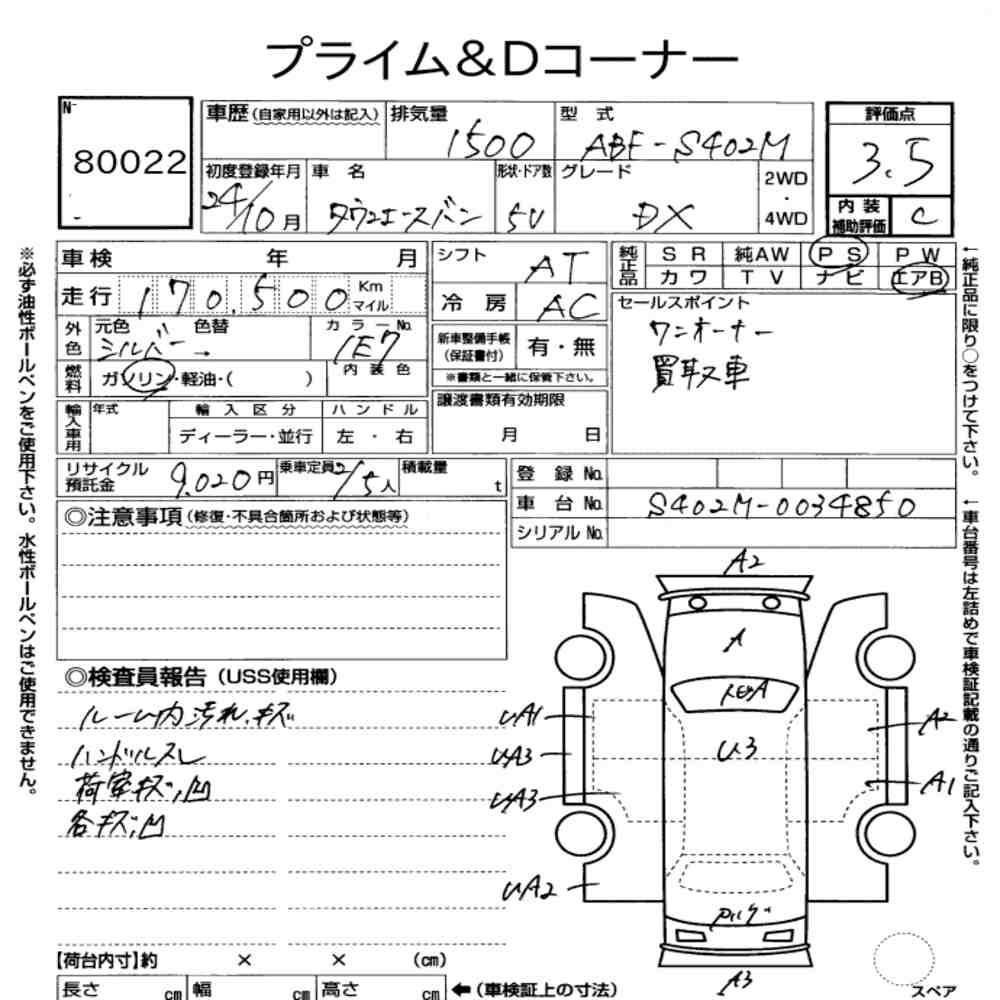 プライム&Dコーナー
N-
80022
車歴(自家用以外は記入) 排気量 1500 型 式 ABF-S402M
初度登録年月 24/10月 車 名 タウンエースバン 形状・ドア数 5V グレード DX 2WD・4WD
評価点
3.5
内装補助評価 C
車検 年 月
走行 170,500 Km マイル
外色 元色 シルバー 色替 → カラーNo. 1E7
燃料 ガソリン・軽油・( ) 内装色
輸入車用 年式 輸入区分 ハンドル
ディーラー・並行 左・右
シフト AT
冷房 AC
新車整備手帳(保証書付) 有・無
※書類と一緒に保管下さい。
譲渡書類有効期限
月 日
純正品 SR 純AW PS PW
カワ TV ナビ エアB
セールスポイント
ワンオーナー
買取車
リサイクル預託金 9,020円 乗車定員 2/5人 積載量 t
登録No.
車台No. S402M-0034850
シリアルNo.
◎注意事項(修復・不具合箇所および状態等)
◎検査員報告(USS使用欄)
ルーム内汚れ、キズ
ハンドルスレ
荷室キズ,凹
各キズ,凹
A2
A
UA1
A2
UA3
U3
UA3
A1
UA2
A3
【荷台内寸】約 × × (cm)
長さ cm 幅 cm 高さ cm ←(車検証上の寸法)
スペア
※必ず油性ボールペンをご使用下さい。水性ボールペンはご使用できません。
←純正品に限り○をつけて下さい。
←車台番号は左詰めで車検証記載の通りご記入下さい。